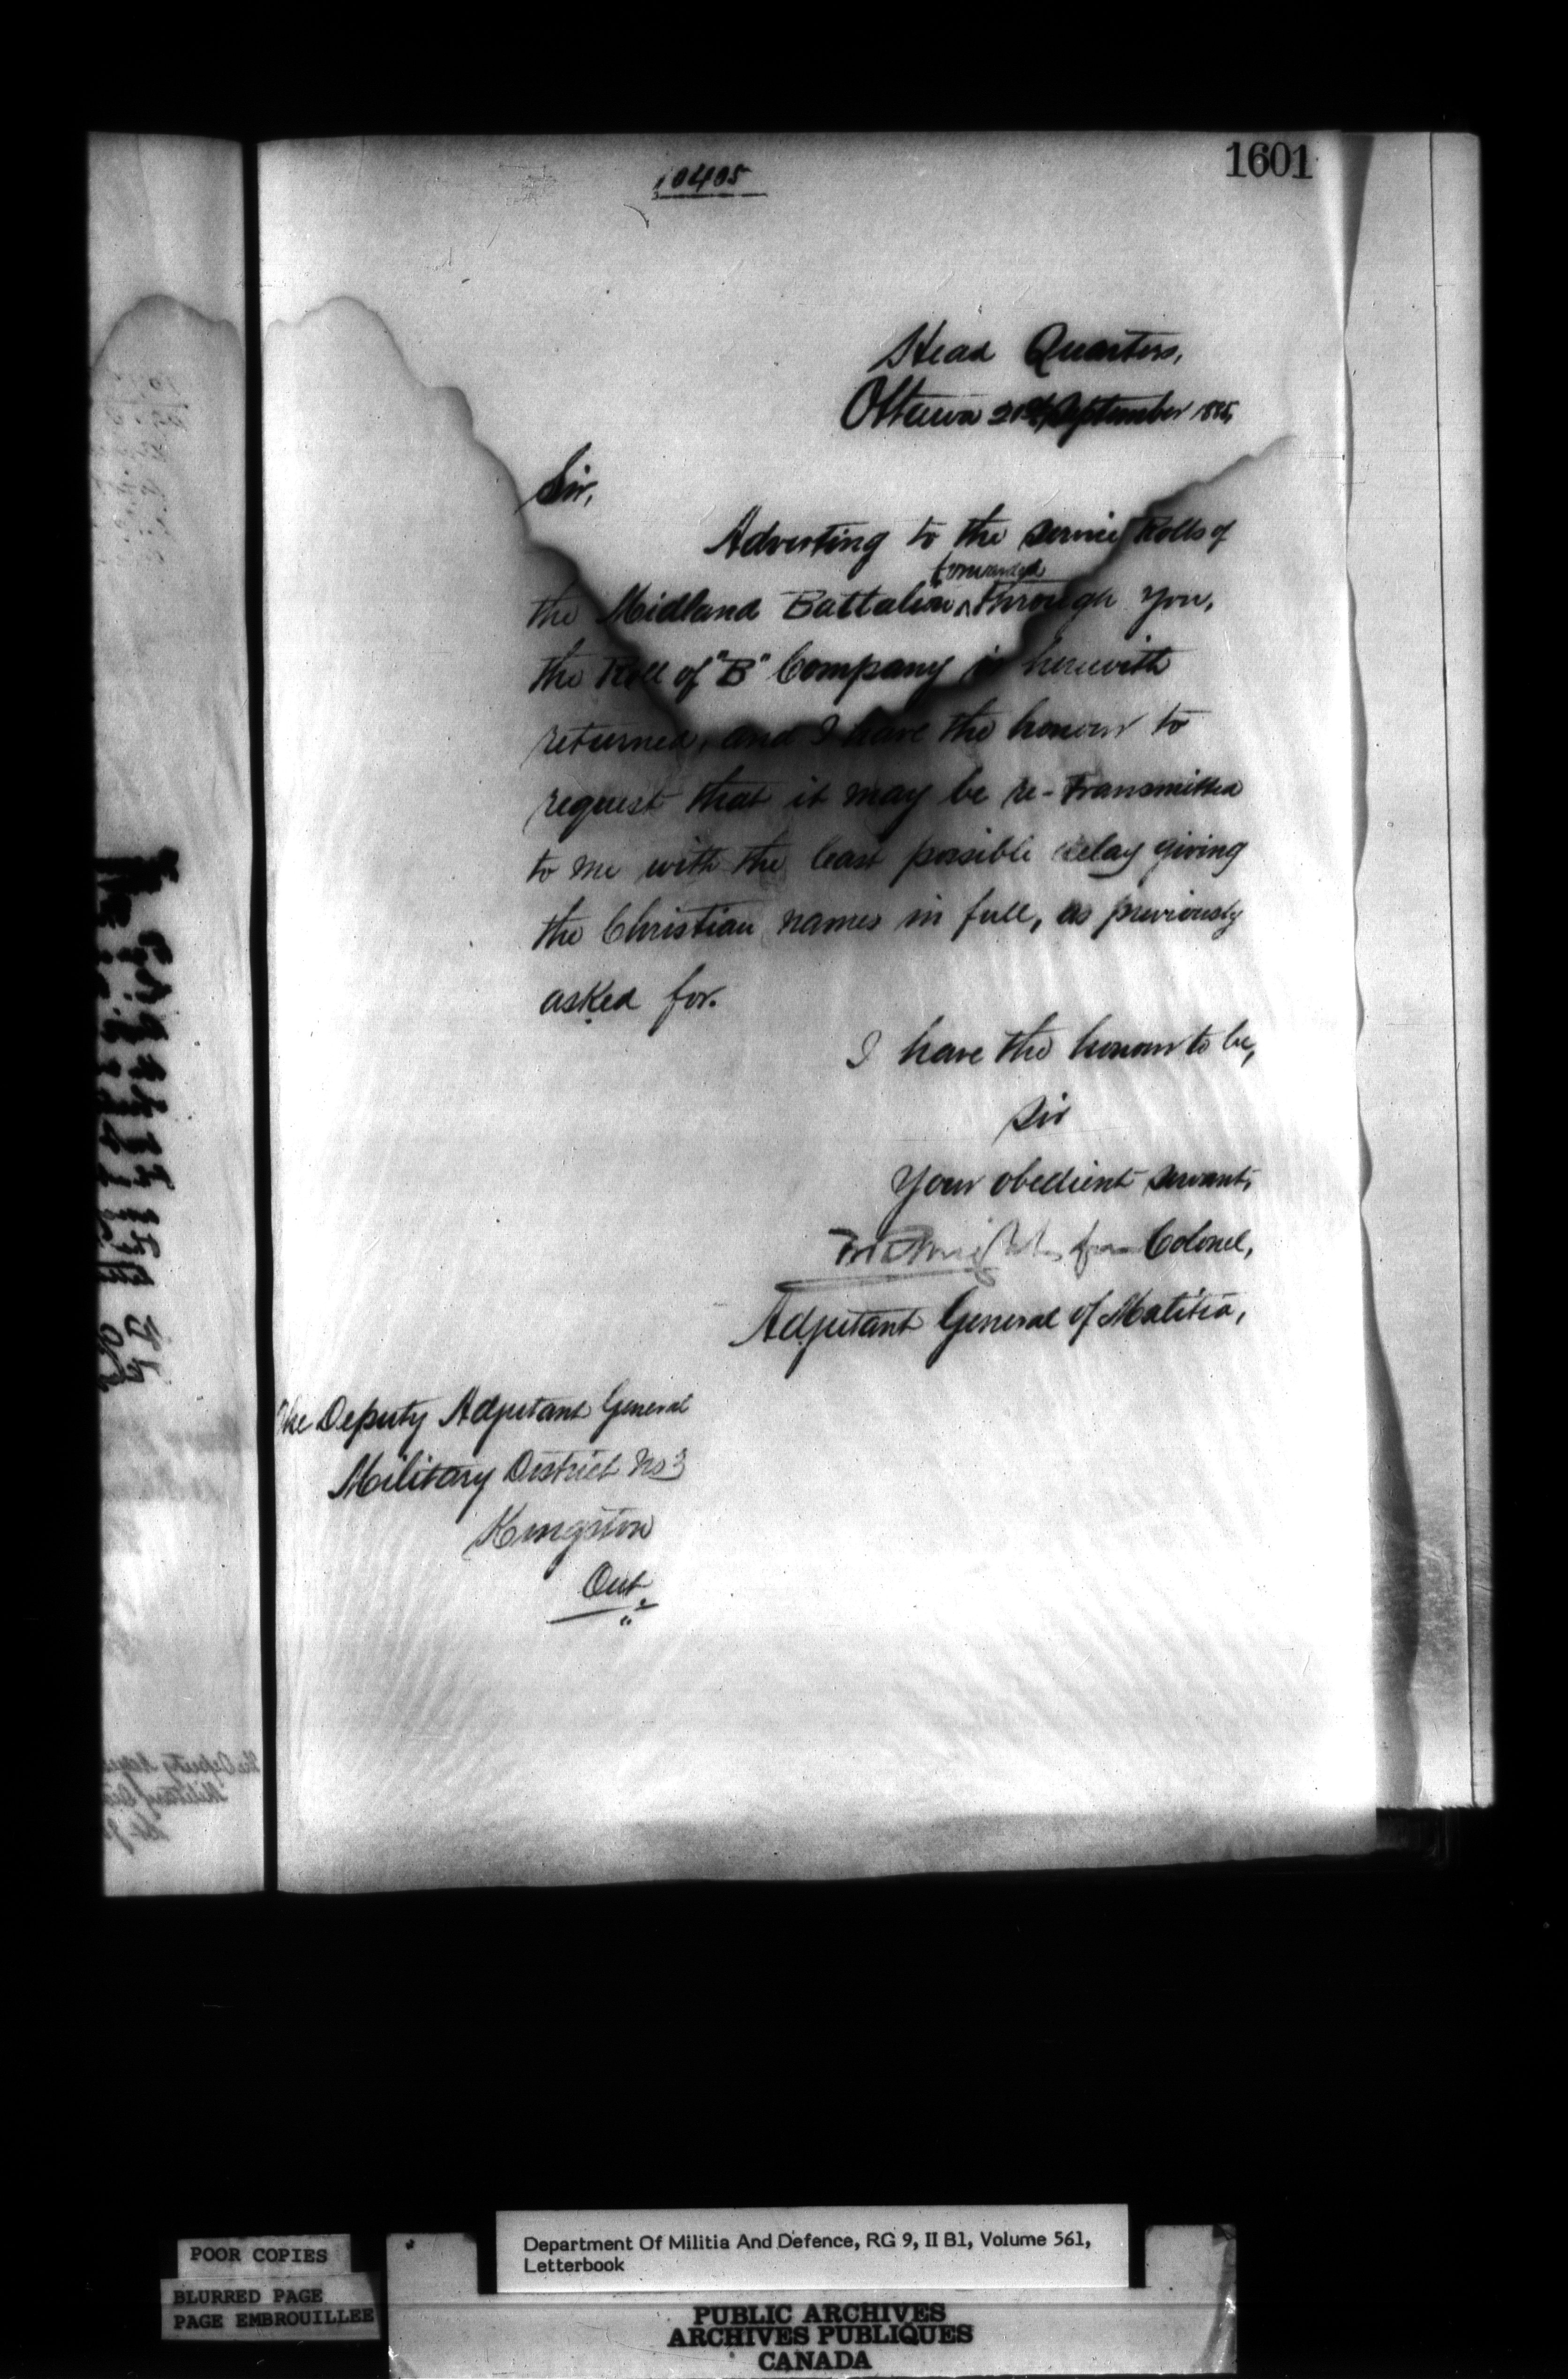 1601
10405
Head Quarters,
Ottawa 21st September 1885,
Sir,
Adverting to the service Rolls of
the Midland Battalion forwarded through you,
the Roll of "B" Company is herewith
returned, and I have the honour to
request that it may be re-transmitted
to me with the least possible delay giving
the Christian names in full, as previously
asked for.
I have the honour to be,
Sir
Your obedient servant,
for Colonel,
Adjutant General of Malitia,
The Deputy Adjutant General
Military District No 3
Kingston
Ont.
POOR COPIES
BLURRED PAGE
PAGE EMBROUILLEE
Department Of Militia And Defence, RG 9, II B1, Volume 561,
Letterbook
PUBLIC ARCHIVES
ARCHIVES PUBLIQUES
CANADA